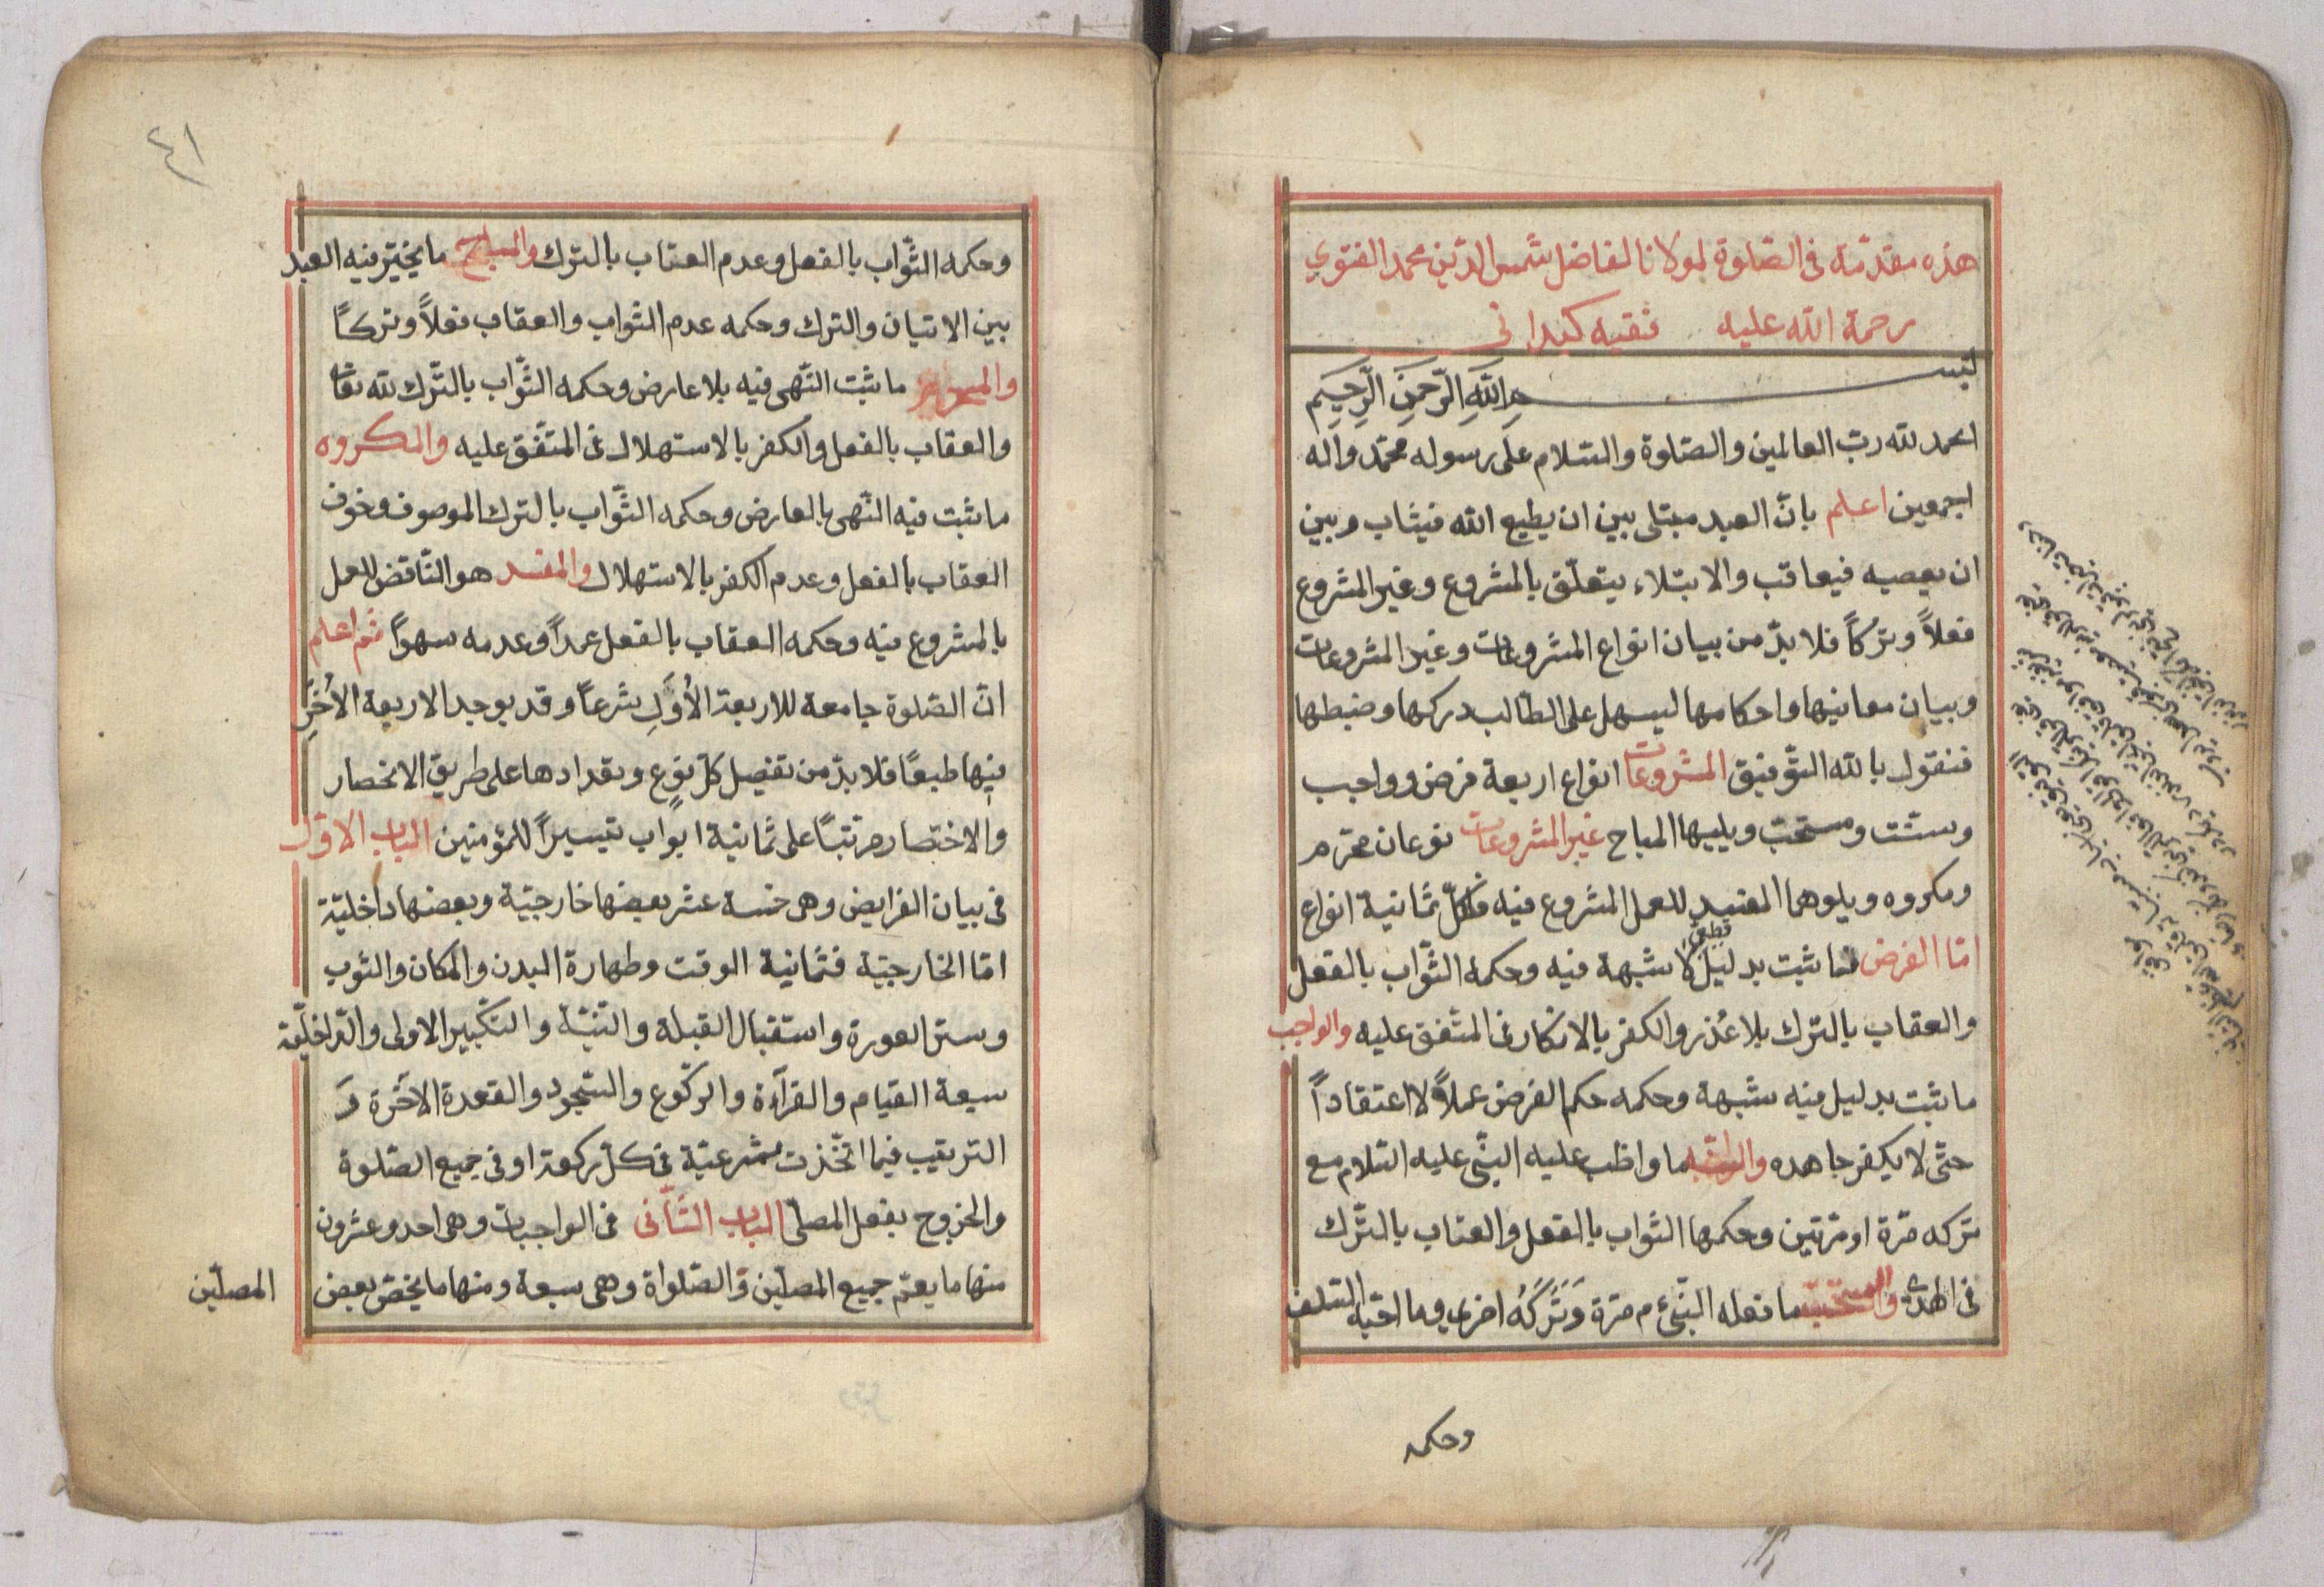 هذه مقدمة فى الصلوة لمولانا الفاضل شمس الدين محمد الفنوي
رحمة الله عليه فقيه كيدانى
بسم الله الرحمن الرحيم
الحمد لله رب العالمين والصلوة والسلام على رسوله محمد واله
اجمعين اعلم بان العبد مبتلى بين ان يطيع الله فيثاب وبين
ان يعصيه فيعاقب والابتلاء يتعلق بالمشروع وغير المشروع
فعلاً وتركاً فلا بد من بيان انواع المشروعات وغير المشروعات
وبيان معانيها واحكامها ليسهل على الطالب دركها وضبطها
فنقول بالله التوفيق المشروعات انواع اربعة فرض وواجب
وسنت ومستحب ويليها المباح غير المشروعات نوعان محرم
ومكروه ويلوهما المفسد للعمل المشروع فيه فالكل ثمانية انواع
اما الفرض فما ثبت بدليل قطعى لا شبهة فيه وحكمه الثواب بالفعل
والعقاب بالترك بلا عذر والكفر بالانكار فى المتفق عليه والواجب
ما ثبت بدليل فيه شبهة وحكمه حكم الفرض عملاً لا اعتقاداً
حتى لا يكفر جاهده والسنة ما واظب عليه النبى عليه السلام مع
تركه مرة او مرتين وحكمها الثواب بالفعل والعتاب بالترك
فى الهدى والمستحب ما فعله النبى ءم مرة وتركه اخرى وما احبه السلف
وحكمه
٤١
وحكمه الثواب بالفعل وعدم العقاب بالترك والمباح ما يخير فيه العبد
بين الاتيان والترك وحكمه عدم الثواب والعقاب فعلاً وتركاً
والمحرم ما ثبت النهى فيه بلا عارض وحكمه الثواب بالترك لله تعا
والعقاب بالفعل والكفر بالاستهلال فى المتفق عليه والمكروه
ما ثبت فيه النهى بالعارض وحكمه الثواب بالترك الموصوف وخوف
العقاب بالفعل وعدم الكفر بالاستهلال والمفسد هو الناقض للعمل
بالمشروع فيه وحكمه العقاب بالفعل عمداً وعدمه سهواً ثم اعلم
ان الصلوة جامعة للاربعة الأول شرعاً وقد يوجد الاربعة الأخر
فيها طبعاً فلا بد من تفصيل كل نوع وتعدادها على طريق الانحصار
والاختصار مرتباً على ثمانية ابواب تيسيراً للمؤمنين الباب الاول
فى بيان الفرايض وهى خمسة عشر بعضها خارجية وبعضها داخلية
اما الخارجية فثمانية الوقت وطهارة البدن والمكان والثوب
وستر العورة واستقبال القبلة والنية والتكبير الاولى والداخلية
سبعة القيام والقرآءة والركوع والسجود والقعدة الاخرة و
الترتيب فيما اتخذت شرعية فى كل ركعة او فى جميع الصلوة
والخروج بفعل المصلى الباب الثانى فى الواجبات وهى احد وعشرون
منها ما يعم جميع المصلين والصلواة وهى سبعة ومنها ما يخص بعض
المصلين